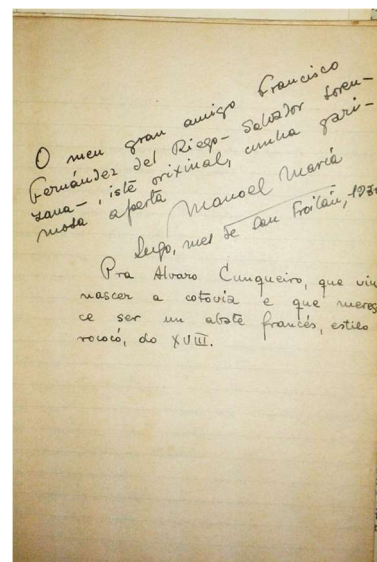 O meu gran amigo Francisco
Fernández del Riego - Salvador Loren-
zana -, iste orixinal, cunha gari-
mosa aperta
Manoel María
Lugo, mes de San Froilán,
Pra Alvaro Cunqueiro, que viu
nascer a cotovia e que meres-
ce ser un abate francés, estilo
rococó, do XVIII.